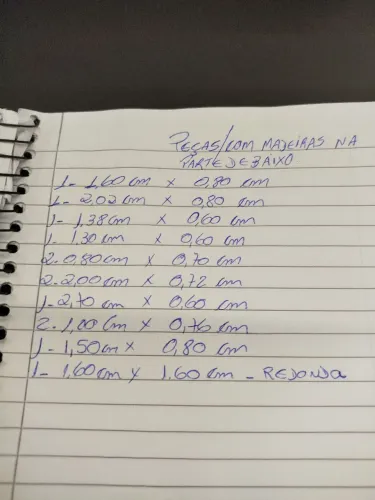 PEÇAS/COM MADEIRAS NA
PARTE DE BAIXO
1- 1,60 cm x 0,80 cm
1- 2,02 cm x 0,80 cm
1- 1,38 cm x 0,60 cm
1- 1,30 cm x 0,60 cm
2- 0,80 cm x 0,70 cm
2- 2,00 cm x 0,72 cm
1- 2,70 cm x 0,60 cm
2- 1,00 cm x 0,76 cm
1- 1,50 cm x 0,80 cm
1- 1.60 cm x 1.60 cm - REDONDA